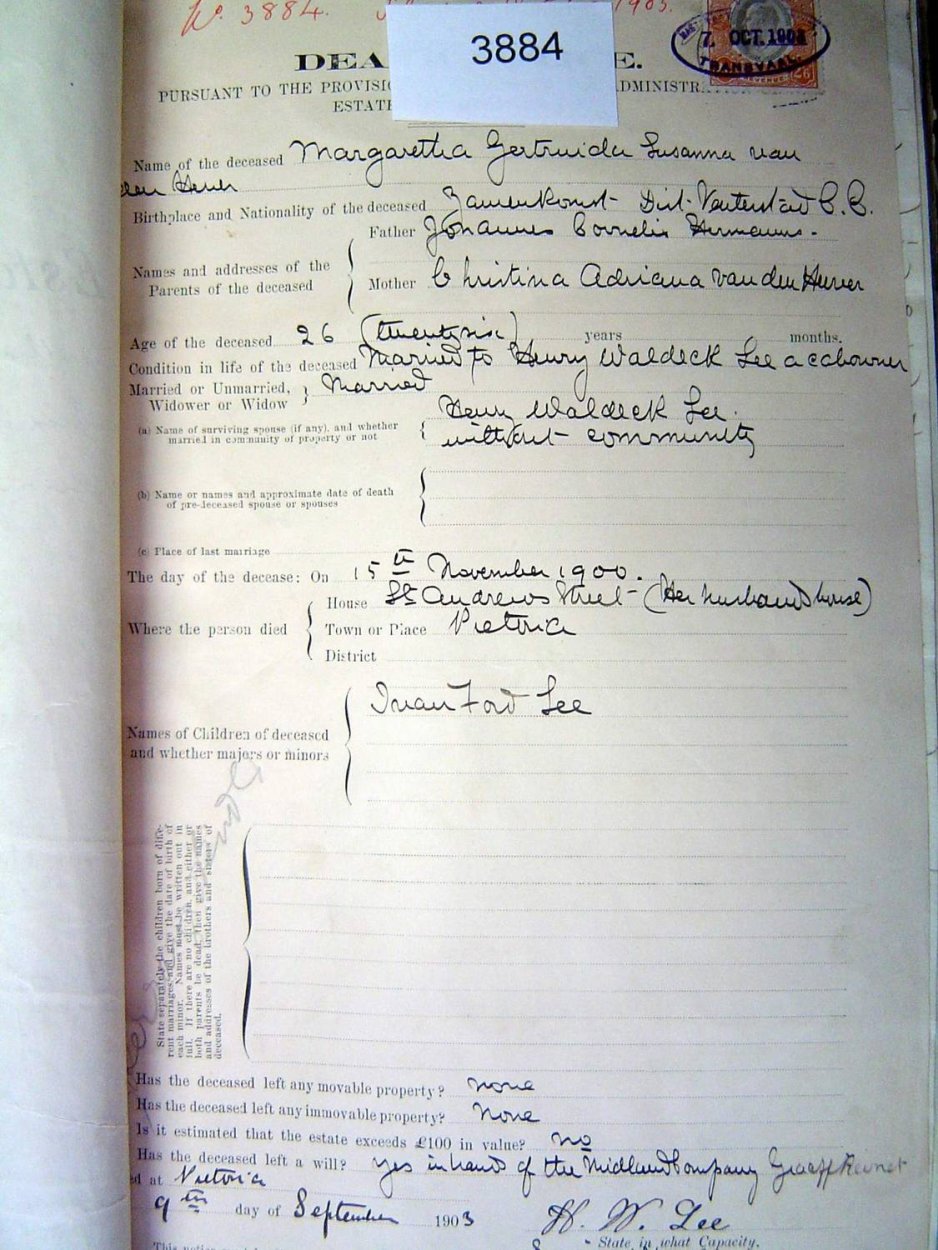 No. 3884. 1903.
3884
7. OCT. 190
TRANSVAAL
REVENUE 2/6
DEA E.
PURSUANT TO THE PROVISIO ADMINISTR
ESTATE
Name of the deceased Margaretha Gertruida Susanna van
Birthplace and Nationality of the deceased Dist. Venterstad C.C.
Father Johannes Cornelis Hermanus.
Names and addresses of the
Parents of the deceased
Mother Christina Adriana van den Heever
Age of the deceased 26 (twenty six) years months.
Condition in life of the deceased Married to Henry Waldeck Lee a cabowner
Married or Unmarried, Married
Widower or Widow
Henry Waldeck Lee.
(a) Name of surviving spouse (if any), and whether
married in community of property or not
without community
(b) Name or names and approximate date of death
of pre-deceased spouse or spouses
(c) Place of last marriage
The day of the decease: On 15th November 1900.
House St Andrews Street - (Her husbands house)
Where the person died Town or Place Pretoria
District
Ivan Ford Lee
Names of Children of deceased
and whether majors or minors
State separately the children born of diffe-
rent marriages and give the date of birth of
each minor. Names must be written out in
full. If there are no children, and either or
both parents be dead, then give the names
and addresses of the brothers and sisters of
deceased.
Has the deceased left any movable property? none
Has the deceased left any immovable property? None
Is it estimated that the estate exceeds £100 in value? no
Has the deceased left a will? yes in hands of the Midland Company Graaff Reinet
d at Pretoria
9th day of September 1903 H. W. Lee
State in what Capacity.
This notice